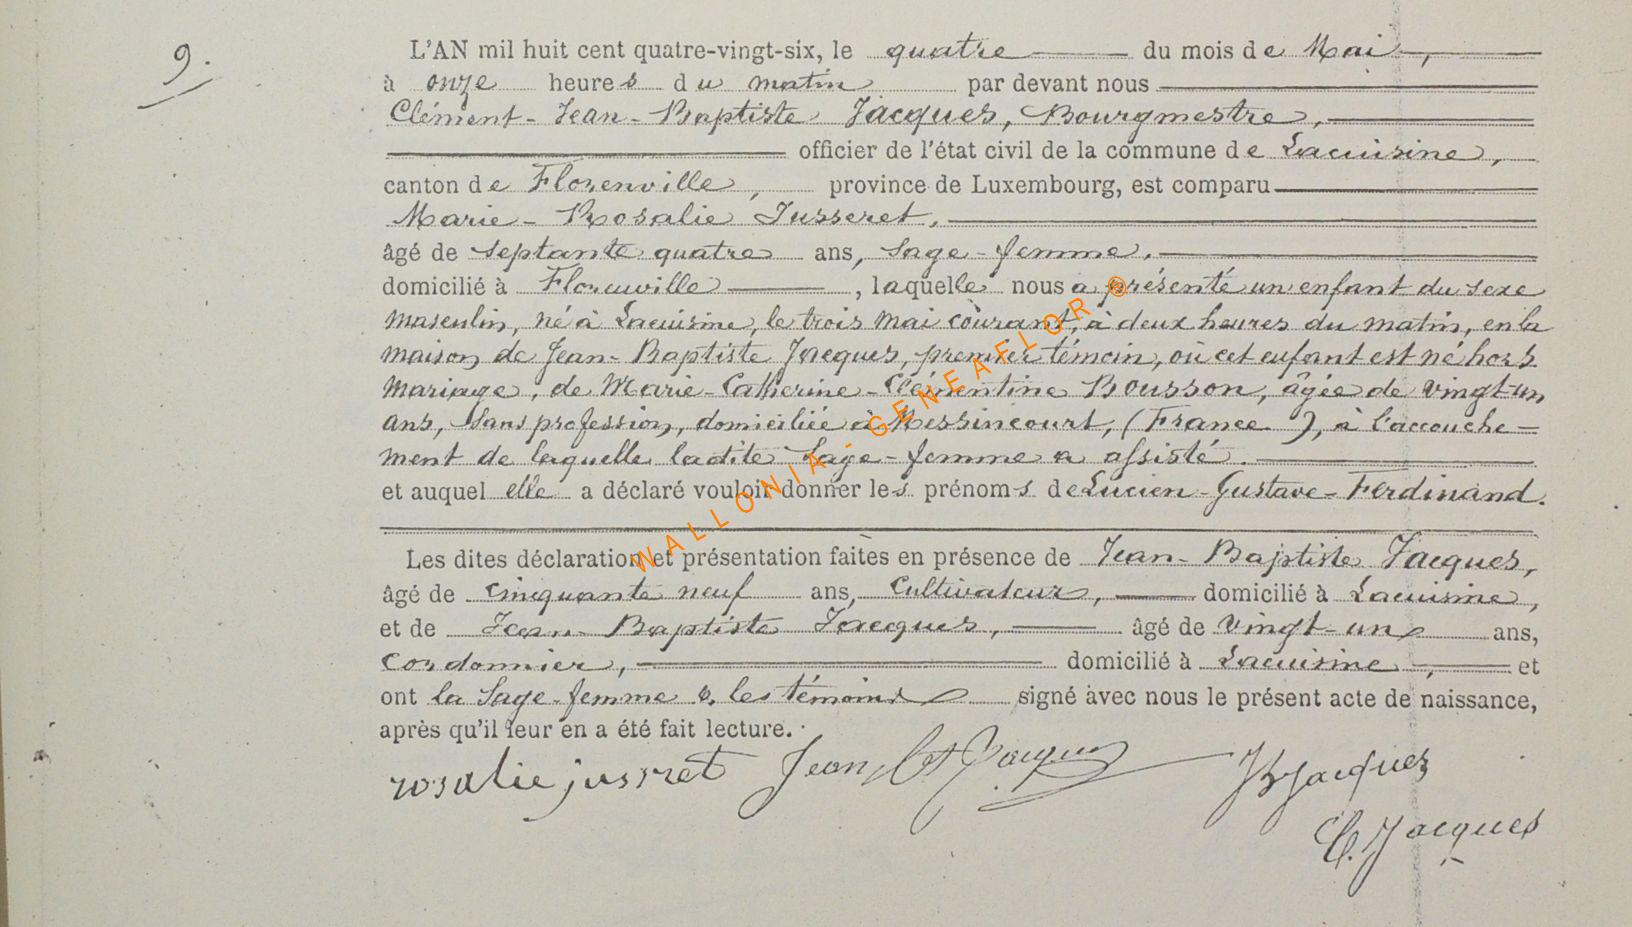 9.
L'AN mil huit cent quatre-vingt-six, le quatre du mois de Mai,
à onze heures du matin par devant nous
Clément-Jean-Baptiste Jacques, Bourgmestre,
officier de l'état civil de la commune de Lacuisine,
canton de Florenville, province de Luxembourg, est comparu
Marie-Rosalie Jusseret,
âgé de septante quatre ans, sage-femme,
domicilié à Florenville, laquelle nous a présenté un enfant du sexe
masculin, né à Lacuisine, le trois mai courant, à deux heures du matin, en la
maison de Jean-Baptiste Jacques, premier témoin, où cet enfant est né hors
mariage, de Marie-Catherine-Clémentine Bousson, âgée de vingt-un
ans, sans profession, domiciliée à Messincourt, (France), à l'accouche-
ment de laquelle ladite sage-femme a assisté.
et auquel elle a déclaré vouloir donner les prénoms de Lucien-Gustave-Ferdinand.
Les dites déclaration et présentation faites en présence de Jean-Baptiste Jacques,
âgé de cinquante neuf ans, Cultivateur, domicilié à Lacuisine,
et de Jean-Baptiste Jacques, âgé de vingt-un ans,
cordonnier, domicilié à Lacuisine, et
ont la Sage-femme & les témoins signé avec nous le présent acte de naissance,
après qu'il leur en a été fait lecture.
rosalie jusret Jean Bt Jacques JBJacques
Cl. Jacques
WALLONIA-GENEAFLOR ©